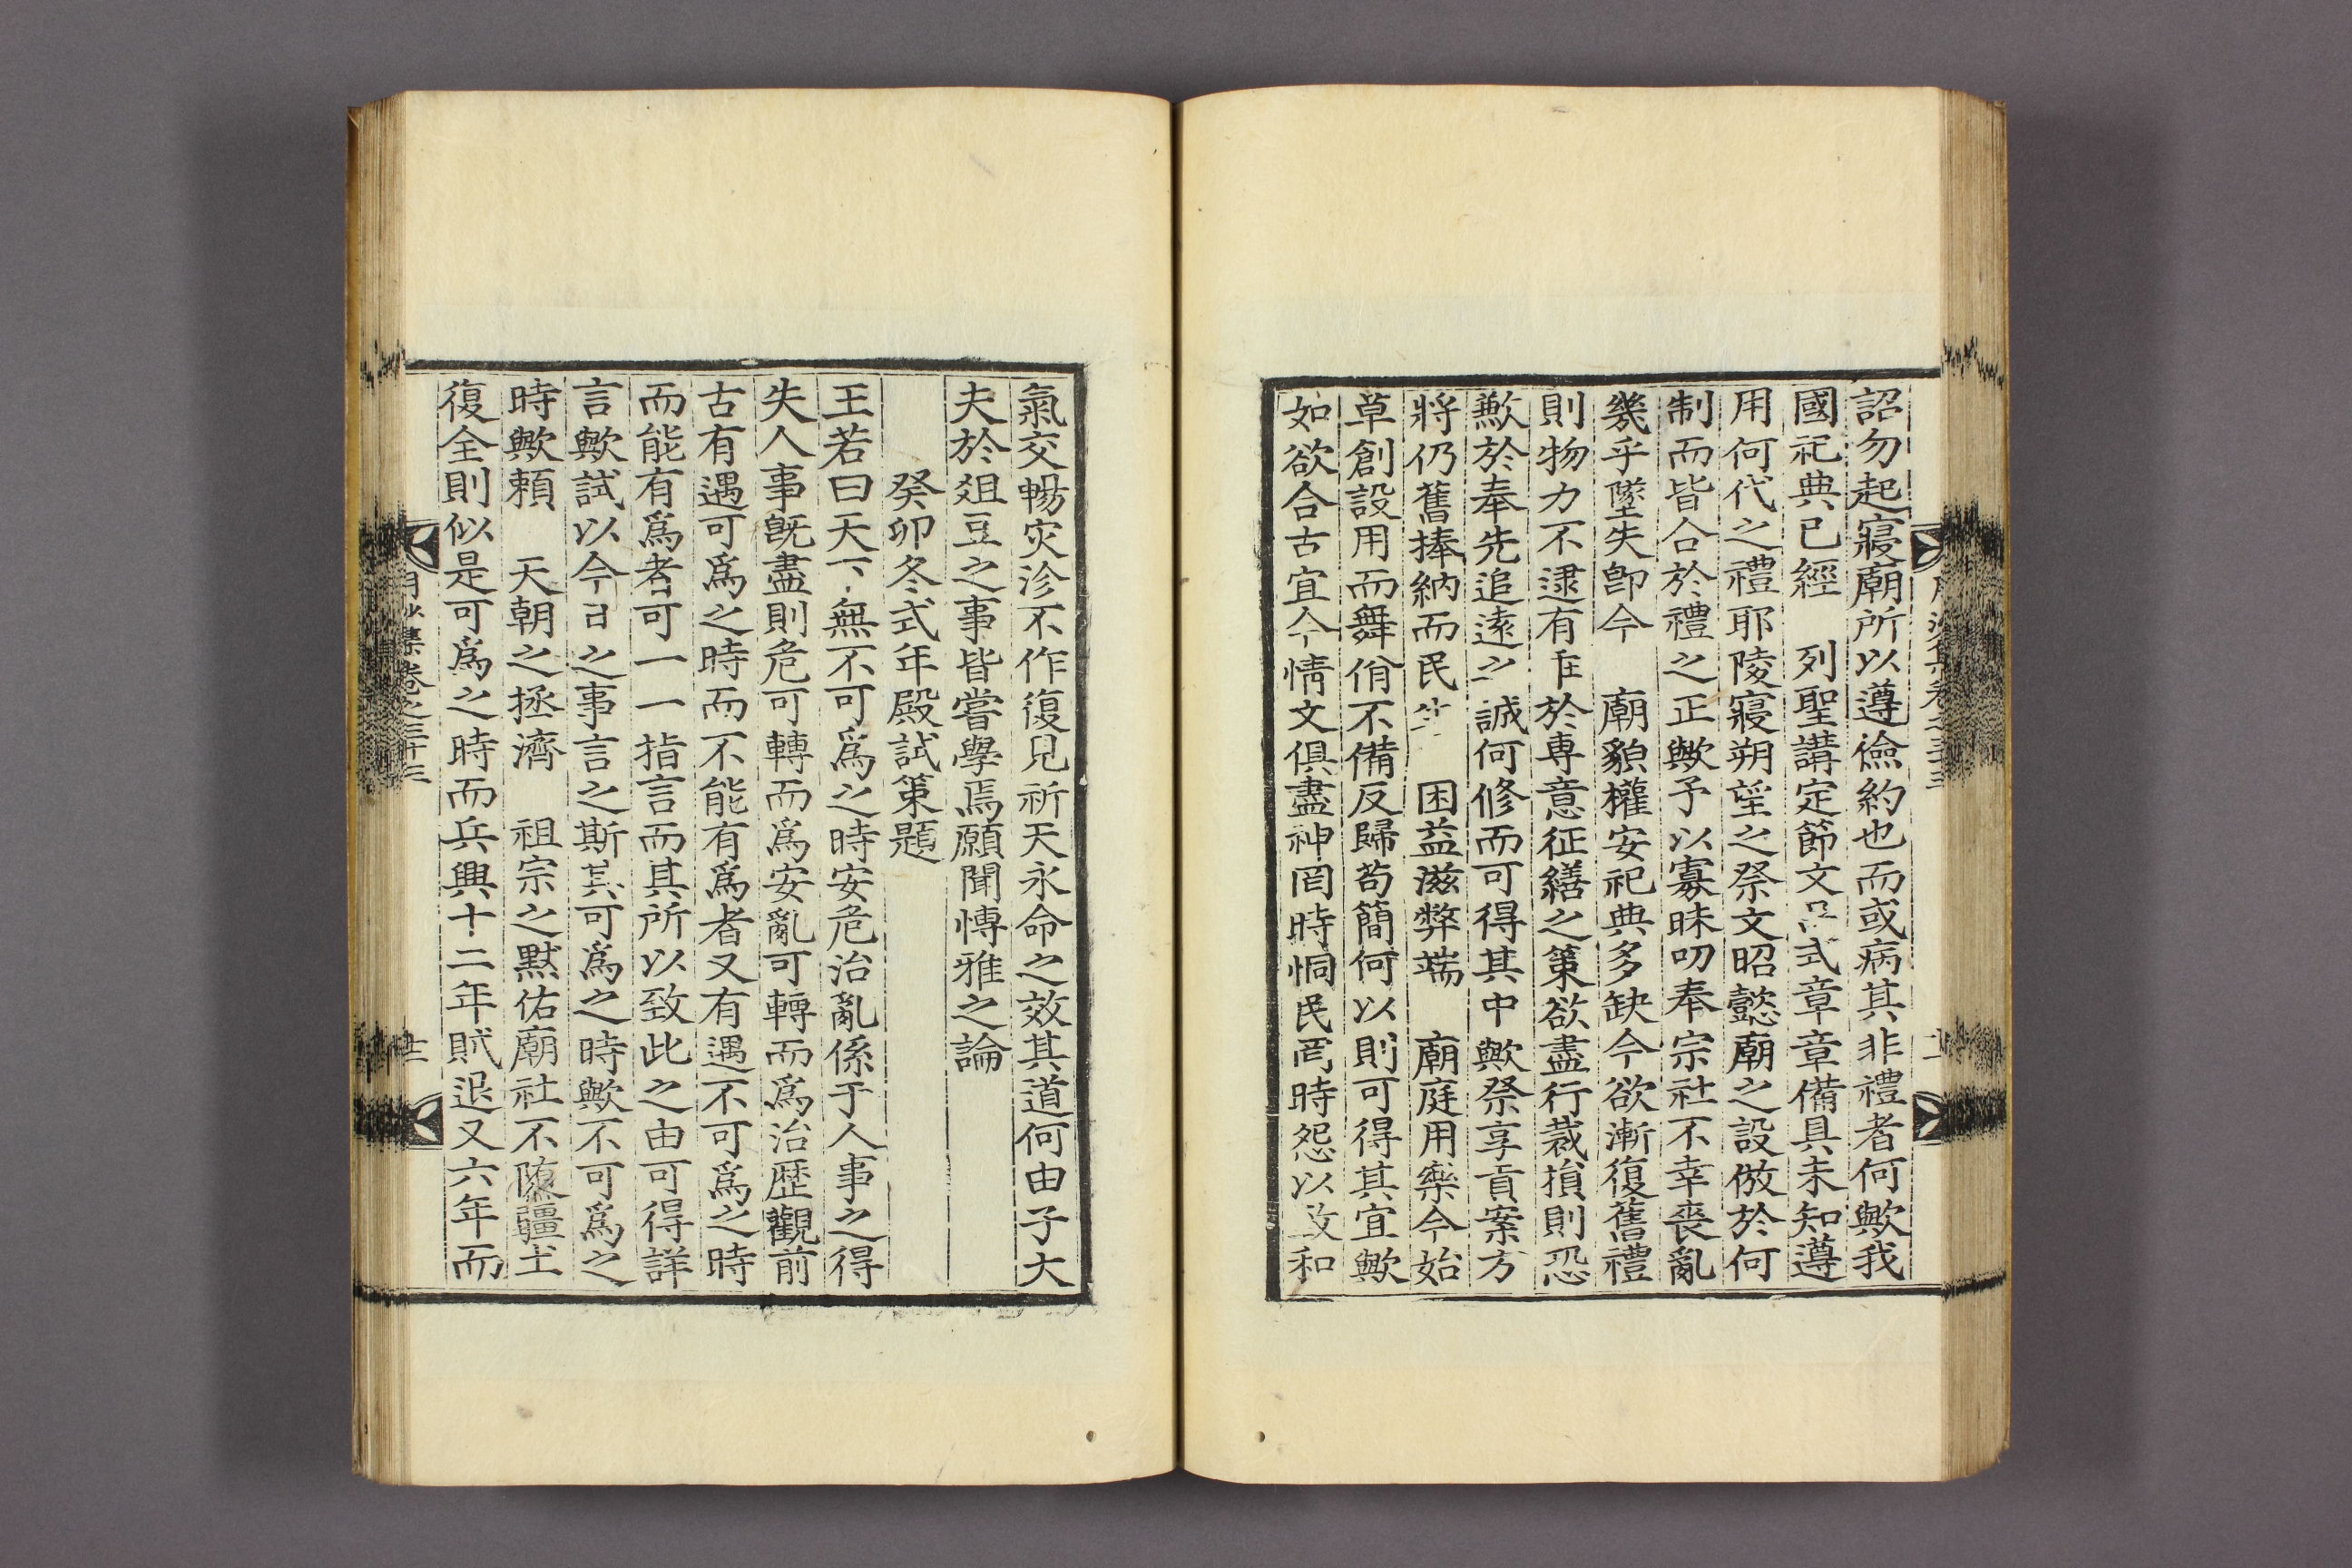 詔勿起寢廟所以遵儉約也而或病其非禮者何歟我
國祀典已經 列聖講定節文 式章章備具未知遵
用何代之禮耶陵寢朔望之祭文昭懿廟之設倣於何
制而皆合於禮之正歟予以寡昧叨奉宗社不幸喪亂
幾乎墜失卽今 廟貌權安祀典多缺今欲漸復舊禮
則物力不逮有 於専意征繕之策欲盡行裁損則恐
歉於奉先追遠之誠何修而可得其中歟祭享貢案方
將仍舊捧納而民生 困益滋弊端 廟庭用樂今始
草創設用而舞佾不備反歸苟簡何以則可得其宜歟
如欲合古宜今情文俱盡神罔時恫民罔時怨以致和
氣交暢灾沴不作復見祈天永命之效其道何由子大
夫於俎豆之事皆嘗學焉願聞愽雅之論
癸卯冬式年殿試策題
王若曰天下無不可爲之時安危治亂係于人事之得
失人事旣盡則危可轉而爲安亂可轉而爲治歷觀前
古有遇可爲之時而不能有爲者又有遇不可爲之時
而能有爲者可一一指言而其所以致此之由可得詳
言歟試以今日之事言之斯其可爲之時歟不可爲之
時歟賴 天朝之拯濟 祖宗之黙佑廟社不隳疆土
復全則似是可爲之時而兵興十二年賊退又六年而
集卷之三十三